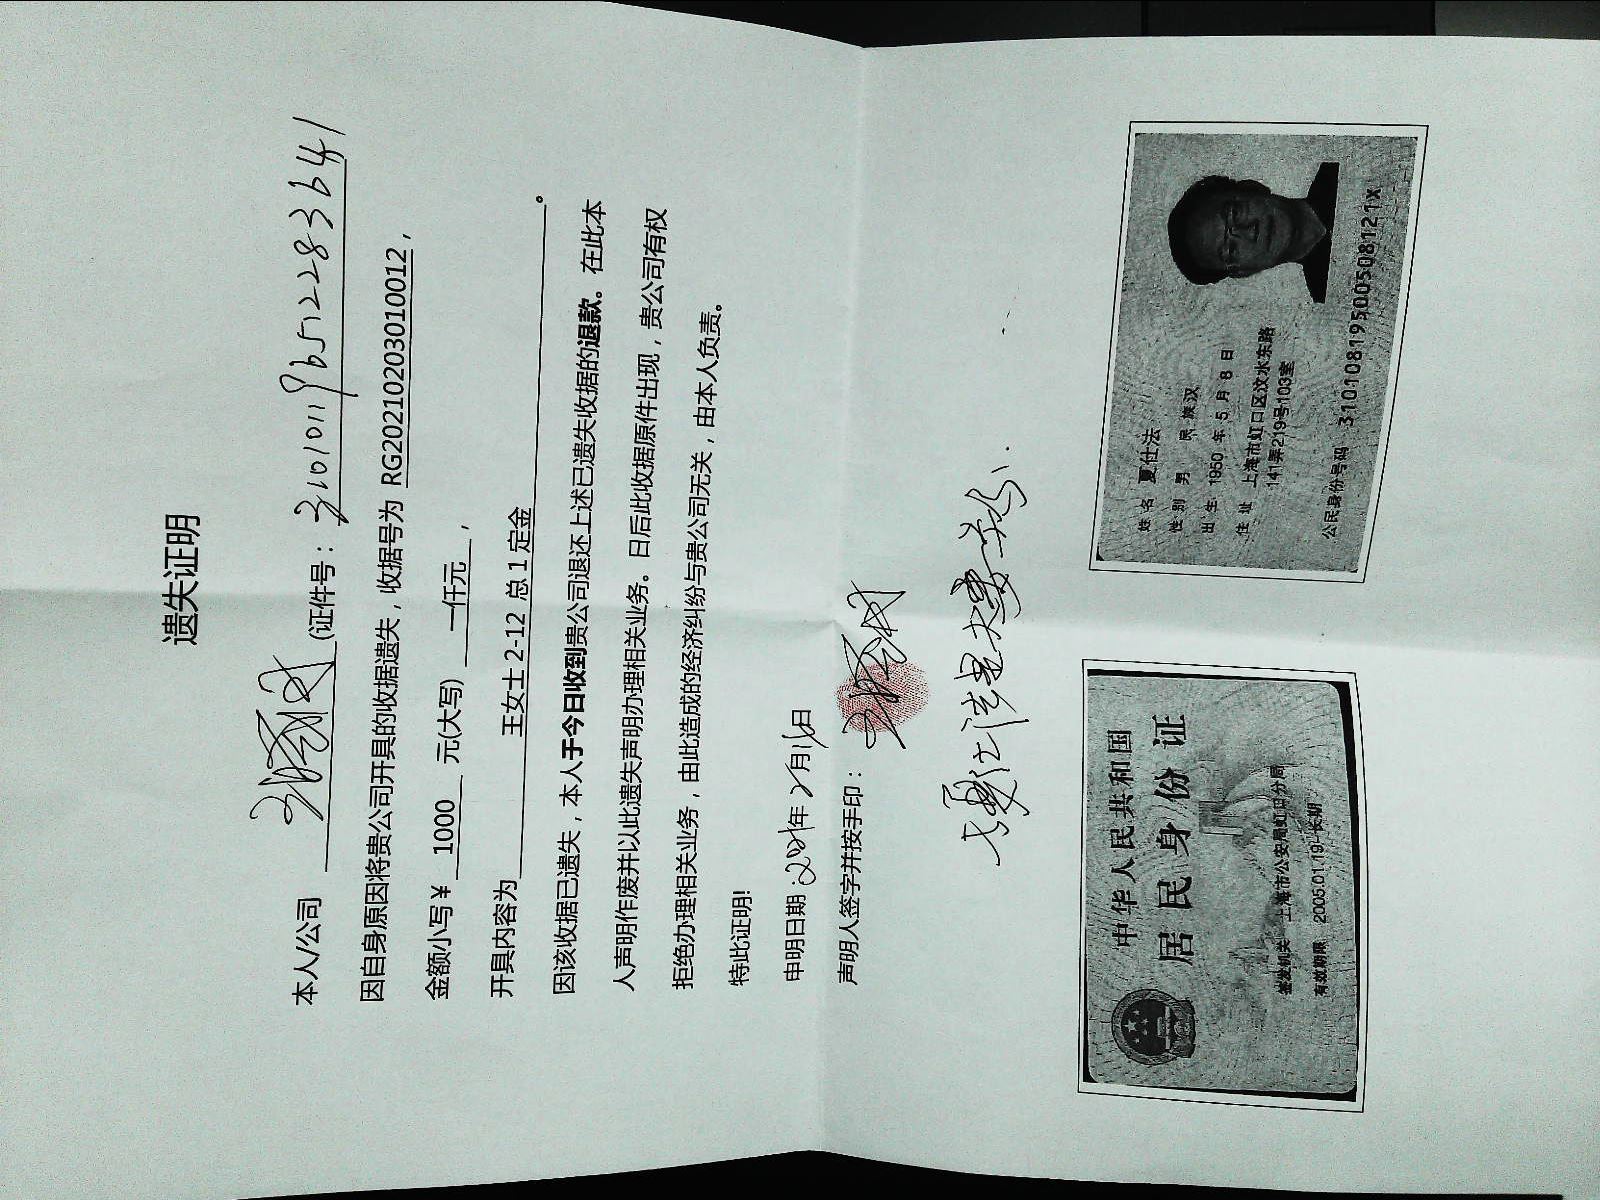 遗失证明
本人/公司 (证件号：310101196512283641
因自身原因将贵公司开具的收据遗失，收据号为 RG20210203010012，
金额小写￥ 1000 元(大写) 一仟元，
开具内容为 王女士 2-12 总 1 定金。
因该收据已遗失，本人于今日收到贵公司退还上述已遗失收据的退款。在此本
人声明作废并以此遗失声明办理相关业务。日后此收据原件出现，贵公司有权
拒绝办理相关业务，由此造成的经济纠纷与贵公司无关，由本人负责。
特此证明!
申明日期：2021年2月16日
声明人签字并按手印：
夏仕法是
姓名 夏仕法
性别 男 民族 汉
出生 1950 年 5 月 8 日
住址 上海市虹口区汶水东路
141弄219号103室
公民身份号码 31010819500508121X
中华人民共和国
居民身份证
签发机关 上海市公安局虹口分局
有效期限 2005.01.19-长期